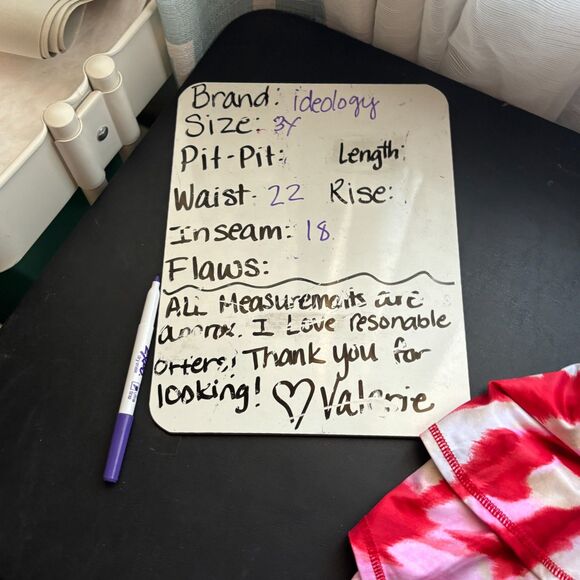 Brand: ideology
Size: 3X
Pit-Pit: Length:
Waist- 22 Rise:
Inseam: 18
Flaws:
ALL Measuremants are
approx. I Love resonable
offers! Thank you for
looking! ♡ Valerie
expo